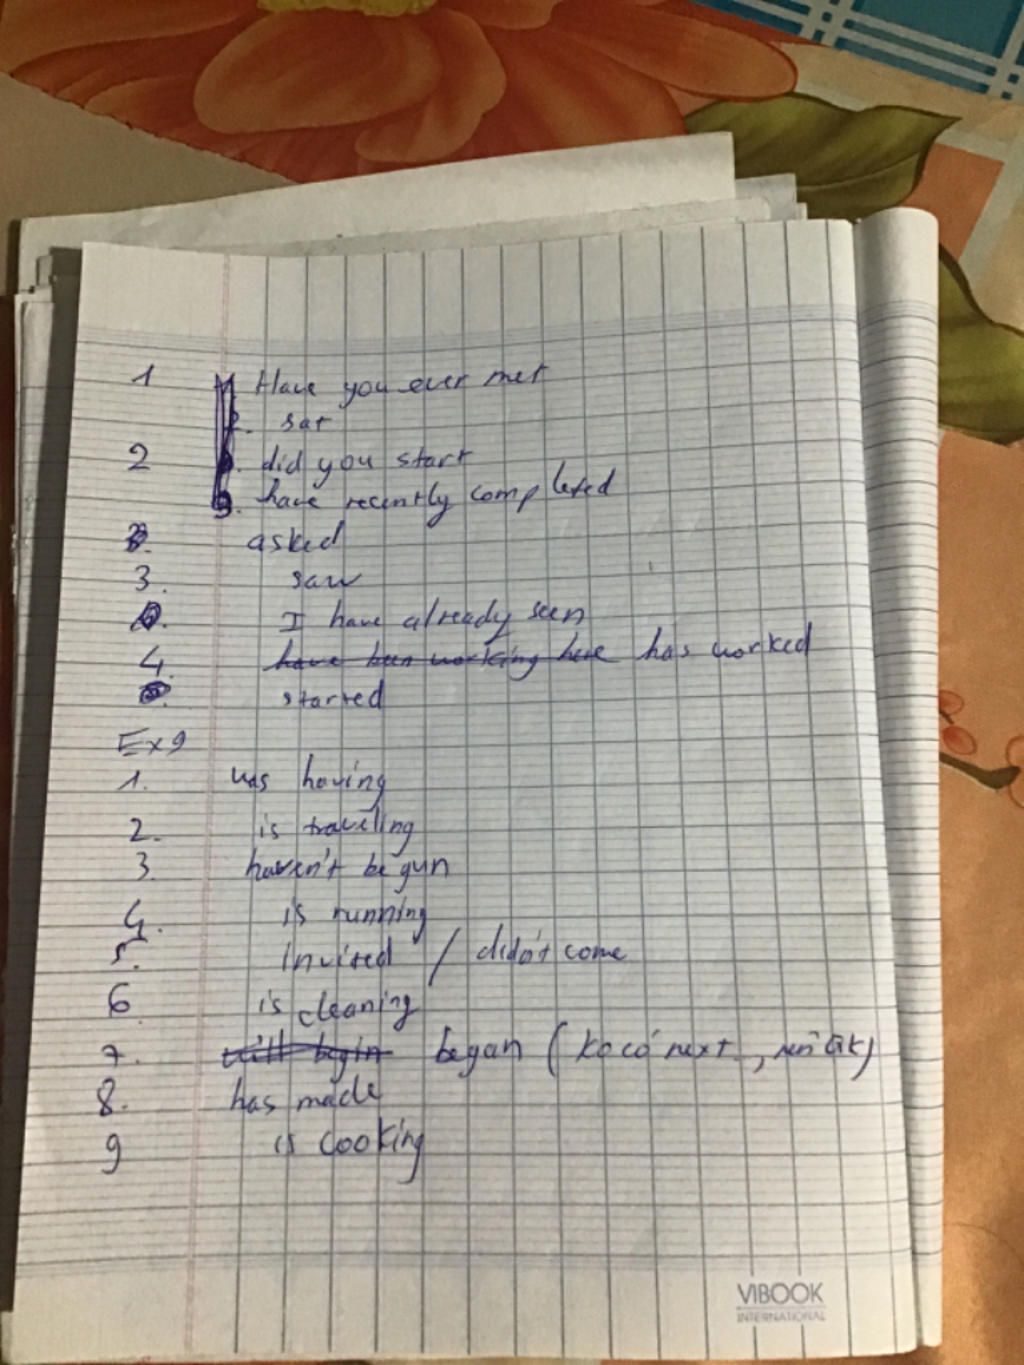 1 Have you ever met
2. sat
2 did you start
3. have recently completed
asked
3. saw
I have already seen
4. have been working here has worked
started
Ex9
1. was having
2. is traveling
3. haven't begun
4. is running
5. invited / didn't come
6 is cleaning
7. will begin began (ko có next, nên QK)
8. has made
9 is cooking
VIBOOK
INTERNATIONAL